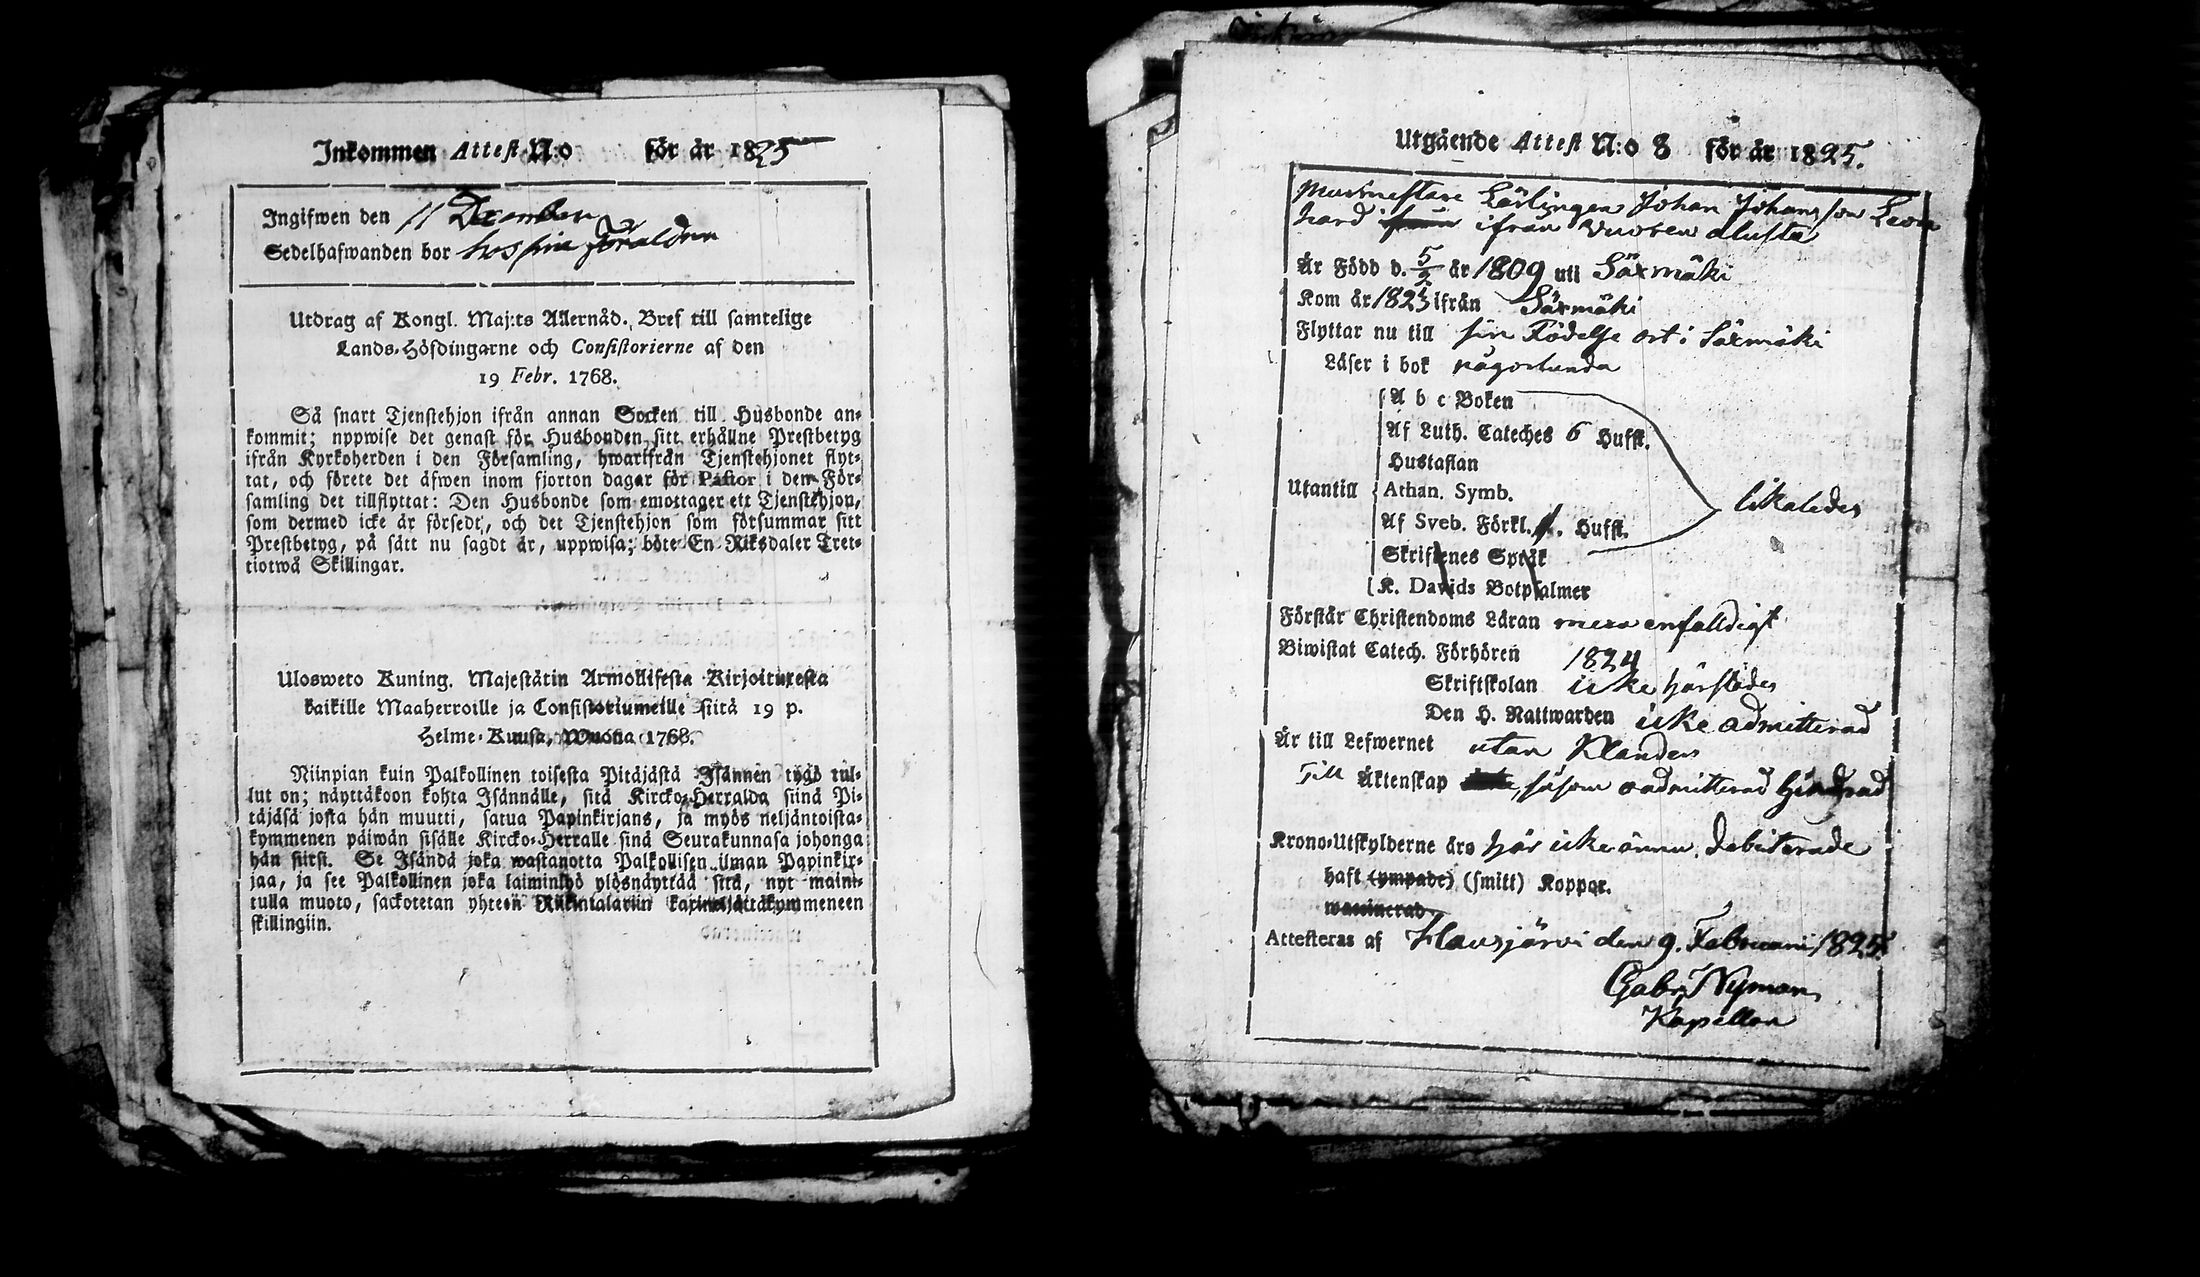 Inkommen Attest N:o för år 1825
Ingifwen den 11 December
Sedelhafwanden bor hos sina föräldrar
Utdrag af Kongl. Maj:ts Allernåd. Bref till samtelige
Lands-Höfdingarne och Consistorierne af den
19 Febr. 1768.
Så snart Tjenstehjon ifrån annan Socken till Husbonde an-
kommit; uppwise det genast för Husbonden sitt erhållne Prestbetyg
ifrån Kyrkoherden i den Församling, hwarifrån Tjenstehjonet flyt-
tat, och förete det äfwen inom fjorton dagar för Pastor i den För-
samling det tillflyttat: Den Husbonde som emottager ett Tjenstehjon,
som dermed icke är försedt, och det Tjenstehjon som försummar sitt
Prestbetyg, på sätt nu sagdt är, uppwisa; böte En Riksdaler Tret-
tiotwå Skillingar.
Ulosweto Kuning. Majestätin Armollisesta Kirjoituxesta
kaikille Maaherroille ja Consistoriumeille siitä 19 p.
Helme-Kuusa, Wuona 1768.
Niinpian kuin Palkollinen toisesta Pitäjästä Isännen tygö tul-
lut on; näyttäkoon kohta Isännälle, sitä Kircko-Herralda siinä Pi-
täjäsä josta hän muutti, saatua Papinkirjans, ja myös neljäntoista-
kymmenen päiwän sisälle Kircko-Herralle sinä Seurakunnasa johonga
hän siirsi. Se Isändä joka wastanotta Palkollisen ilman Papinkir-
jaa, ja see Palkollinen joka laiminlyö ylösnäyttää sitä, nyt maini-
tulla muoto, sackotetan yhteen Riikintalariin kaxineljättäkymmeneen
skillingiin.
Utgående Attest N:o 8 för år 1825.
Murmestare Lärlingen Johan Johansson Leon
hard ifrån Wuoren alusta
Är Född d. 5/2 år 1809 uti Säxmäki
Kom år 1823 ifrån Säxmäki
Flyttar nu till sin Födelse ort i Säxmäki
Läser i bok någorlunda
A b c Boken
Af Luth. Cateches 6 Hufst.
Hustaflan
Utantill Athan. Symb. likaledes
Af Sveb. Förkl. Hufst.
Skriftenes Språk
K. Davids Botpsalmer
Förstår Christendoms Läran mera enfalldigt
Biwistat Catech. Förhören 1824
Skriftskolan icke härstädes
Den H. Nattwarden icke admitterad
Är till Lefwernet utan Klander
Till Äktenskap såsom oadmitterad hindrad
Krono-Utskylderne äro här icke ännu debiterade
haft (ympade) (smitt) Koppor.
waccinerad
Attesteras af Hausjärvi den 9. Februarii 1825.
Gabr. Nyman
Kapellan